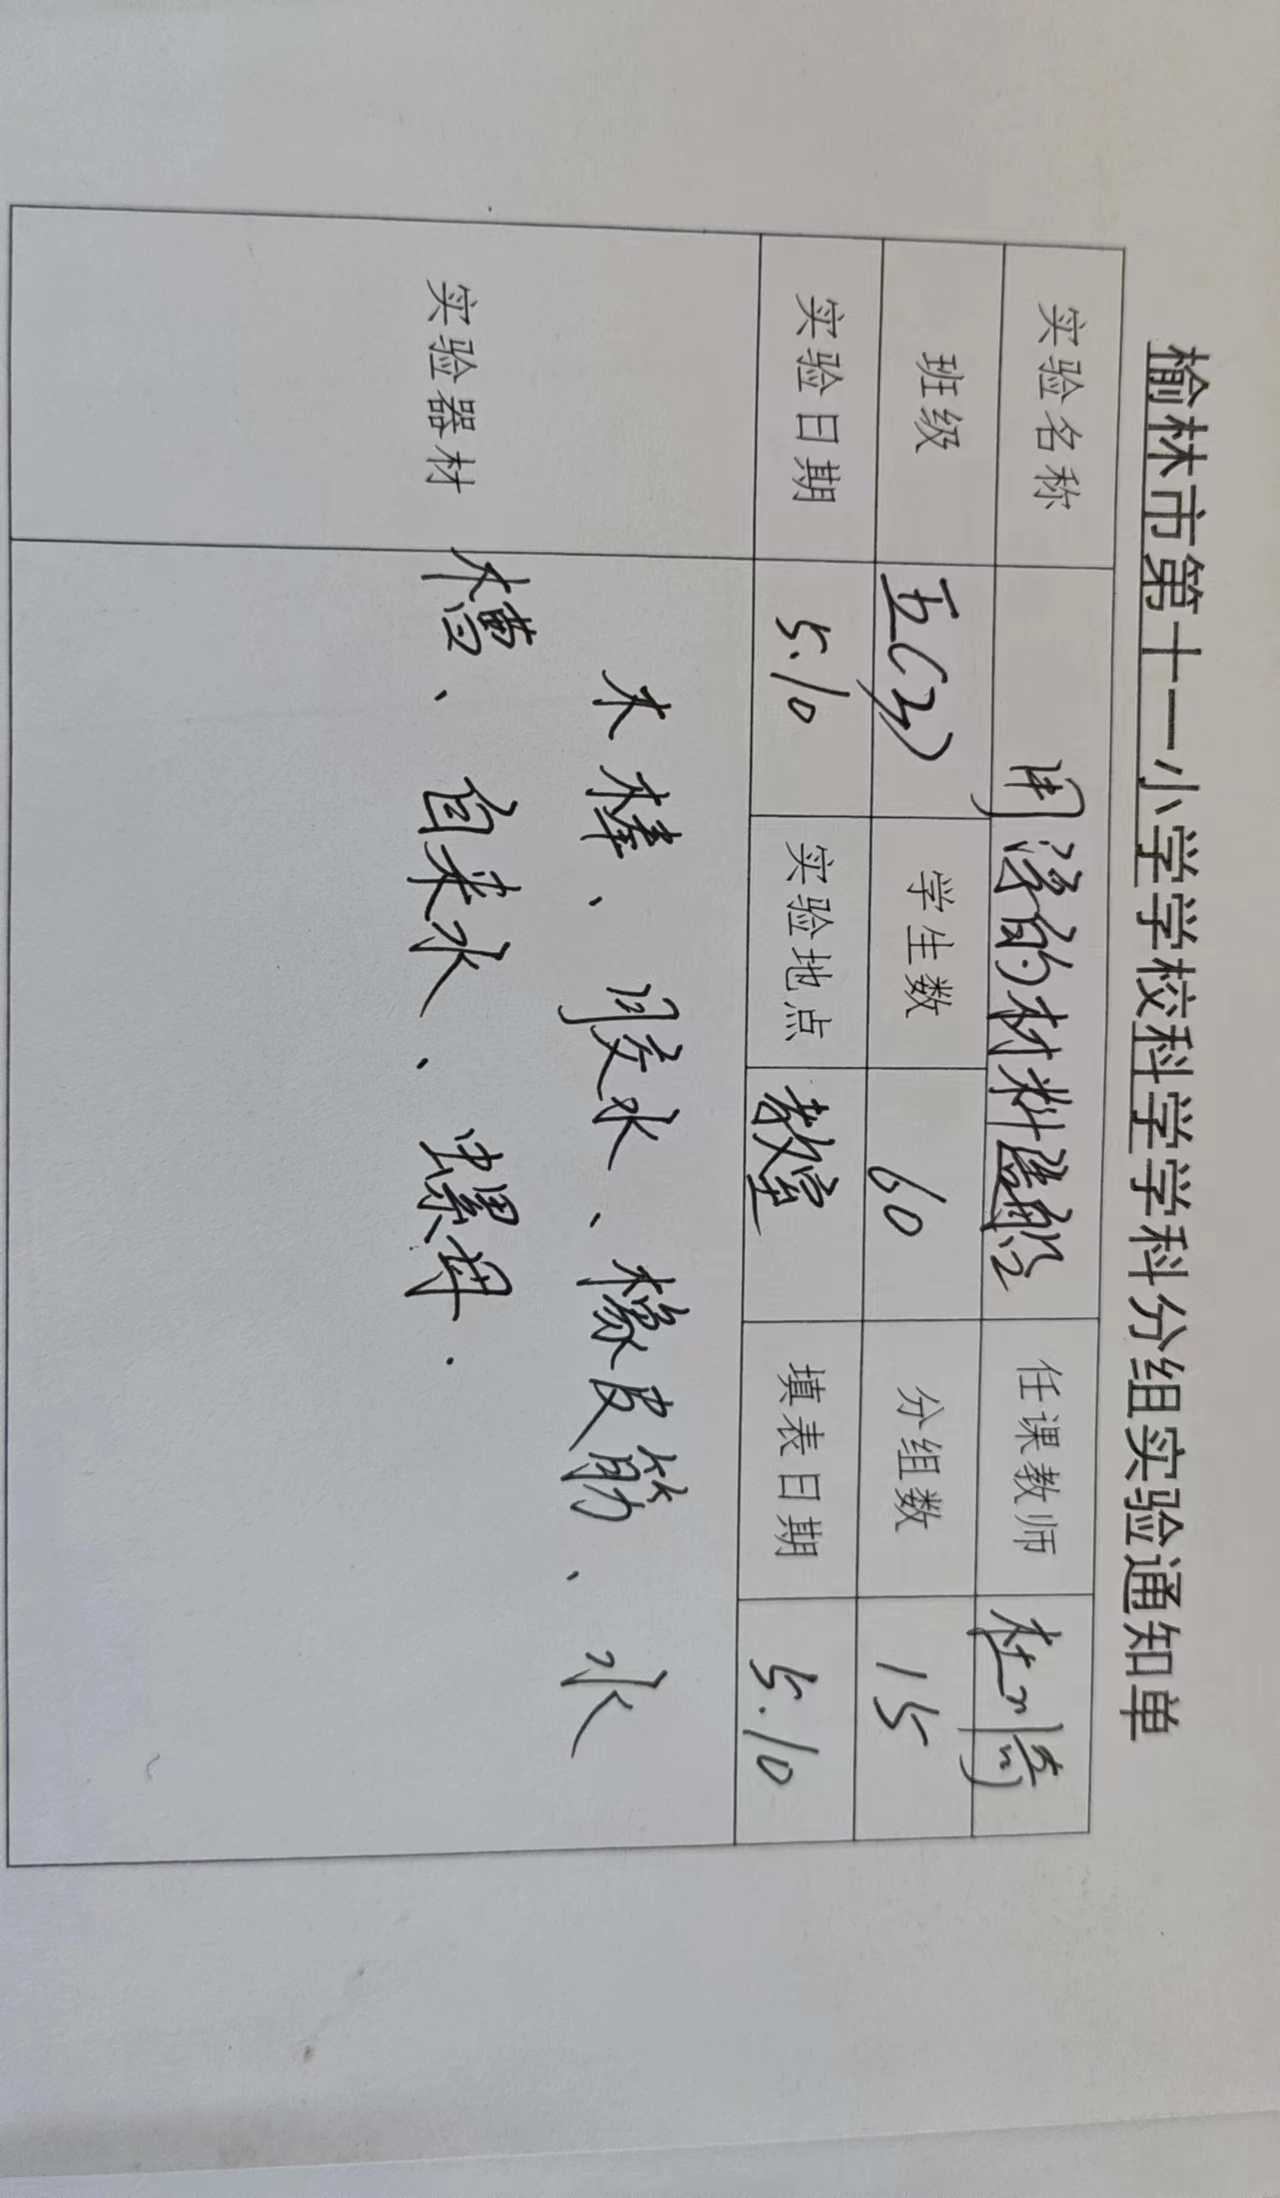 榆林市第十一小学学校科学学科分组实验通知单
实验名称 用浮的材料造船 任课教师
班级 五(3) 学生数 60 分组数 15
实验日期 5.10 实验地点 教室 填表日期 5.10
实验器材 木棒、胶水、橡皮筋、水
槽、自来水、螺母.